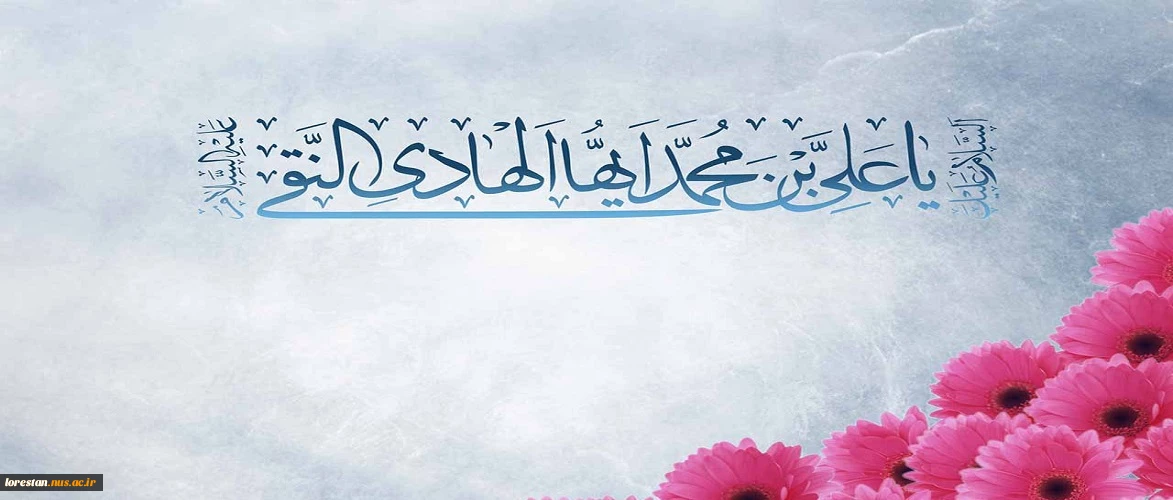 السَّلامُ عَلَیْكَ
یا عَلِیَّ بْنَ مُحَمَّدٍ اَیُّهَا الْهادِی النَّقی
عَلَیْهِ السَّلامُ
lorestan.nus.ac.ir